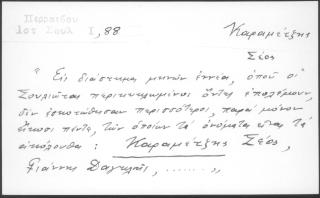 Περραιβού
Ιστ Σουλ Ι, 88
Καραμέτζης
Σέος
" Εις διάστημα μηνών εννέα, οπού οι
Σουλιώται περικυκλωμένοι όντες επολέμουν,
δεν εσκοτώθησαν περισσότεροι, παρά μόνον
είκοσι πέντε, των οποίων τα ονόματα είναι τα
ακόλουθα : Καραμέτζης Σέος,
Γιάννης Δαγκλής, ........ "